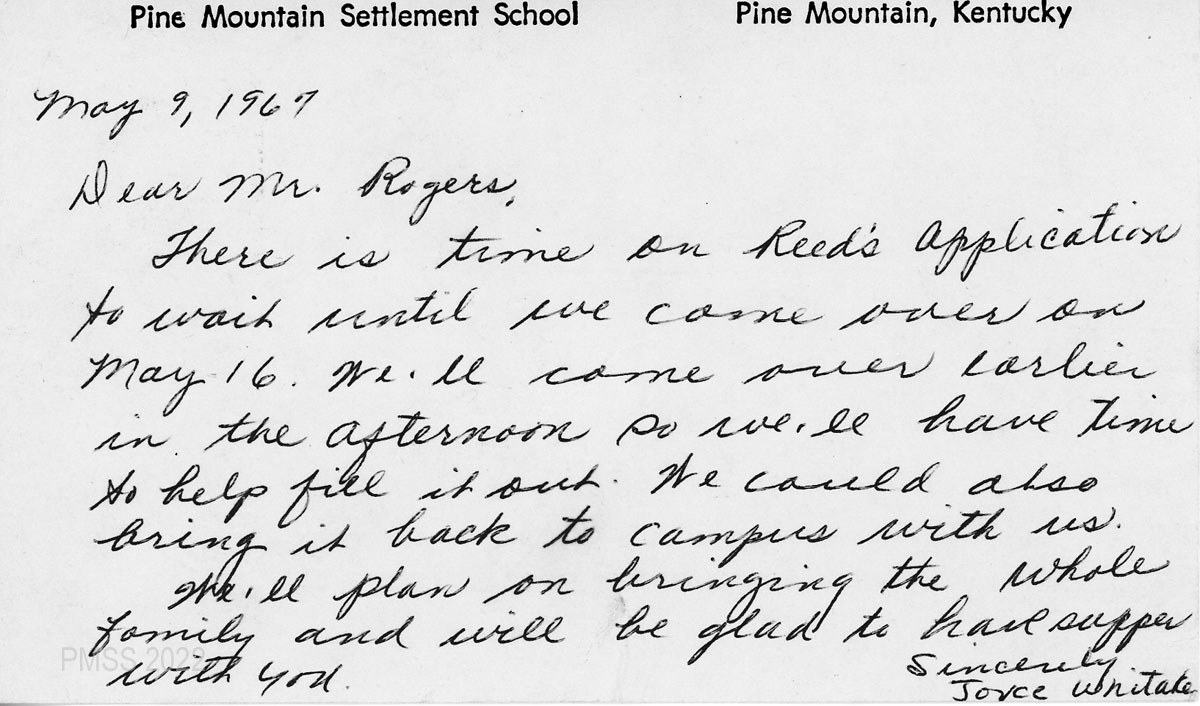 Pine Mountain Settlement School Pine Mountain, Kentucky
May 9, 1967
Dear Mr. Rogers,
There is time on Reed's Application
to wait until we come over on
May 16. We'll come over earlier
in the afternoon so we'll have time
to help fill it out. We could also
bring it back to campus with us.
We'll plan on bringing the whole
family and will be glad to have supper
with you.
Sincerely,
Joyce Whitake
PMSS 2022